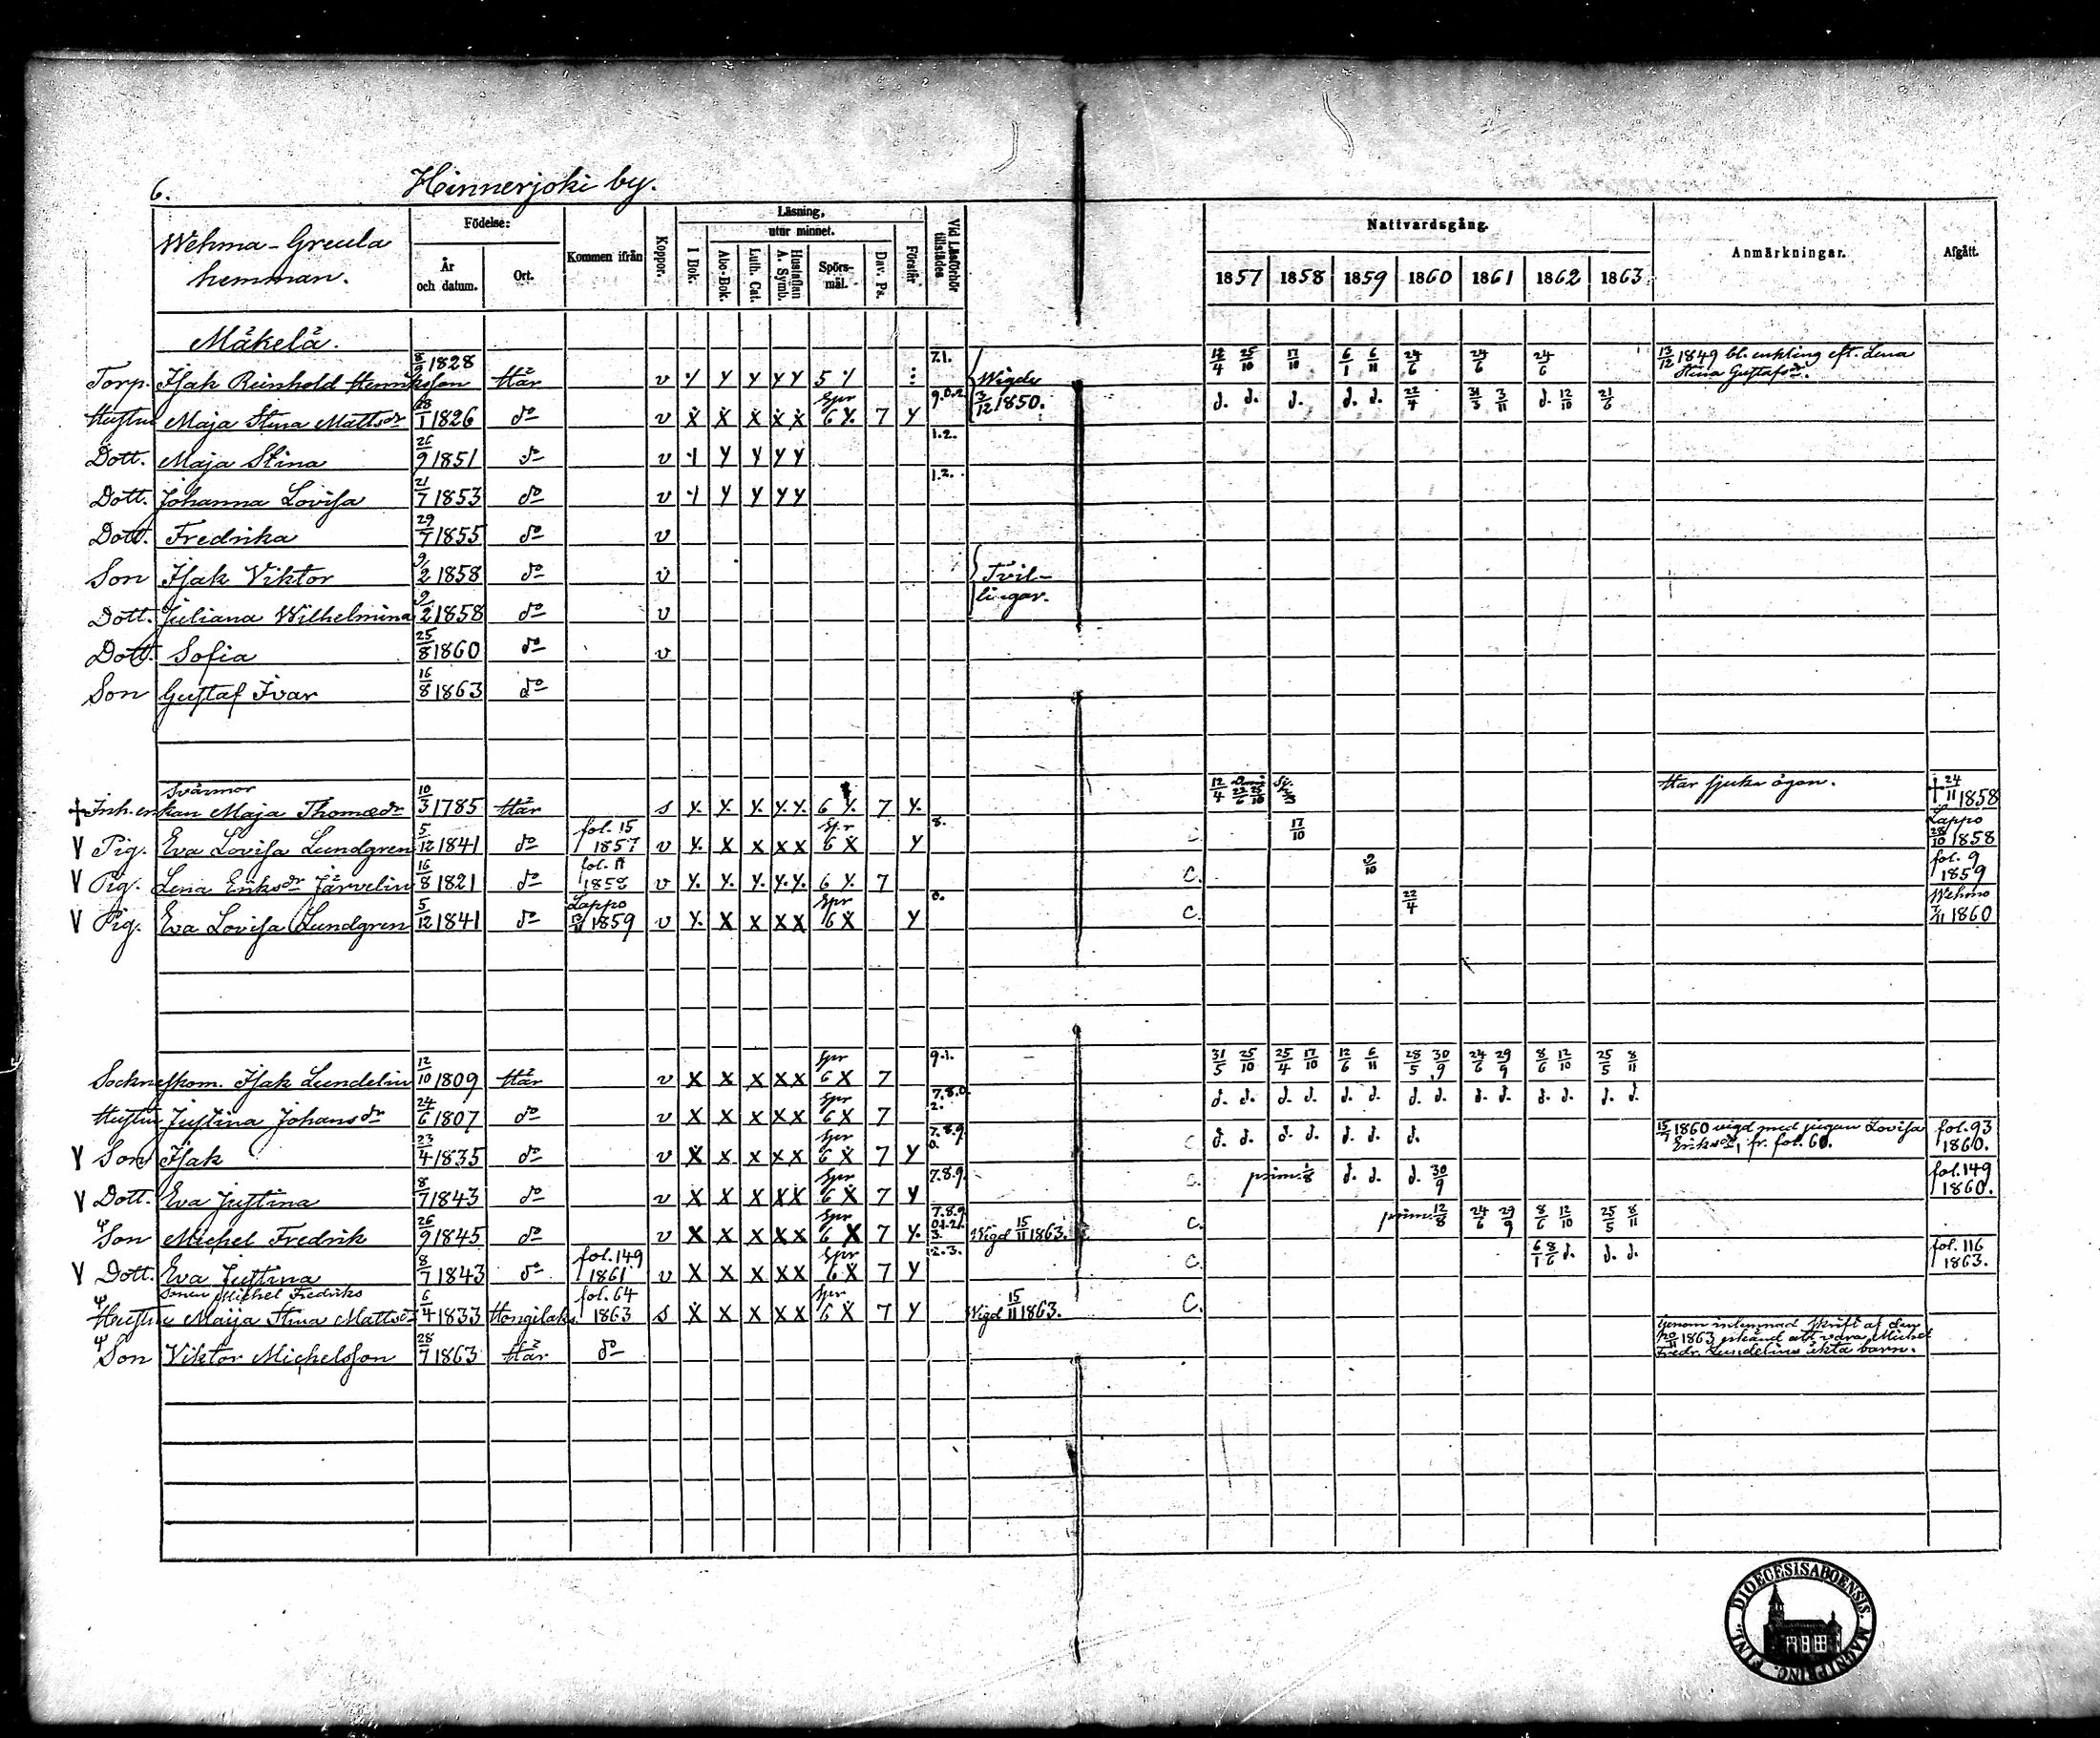 6. Hinnerjoki by.
Wehma-Greula
hemman.
Födelse:
År
och datum.
Ort.
Kommen ifrån
Koppor.
Läsning,
utur minnet.
I Bok.
Abc-Bok.
Luth. Cat.
Hustaflan
A. Symb.
Spörs-
mål.
Dav. Ps.
Förstår
Vid Läsförhör
tillstädes
Nattvardsgång.
1857 1858 1859 1860 1861 1862 1863
Anmärkningar.
Afgått.
Mäkelä.
Torp. Isak Reinhold Henriksson 8/9 1828 Här v y y y y y 5 7.1. Wigde 12/4 25/10 17/10 6/1 6/11 24/6 24/6 24/6 13/12 1849 bl. enkling eft. Lena
Stina Gustafsdr.
Hustru Maja Stina Mattsdr 28/1 1826 do v x x x x x Spr 6 y. 7 y 9.0.2 3/12 1850. d. d. d. d. d. 22/4 31/3 3/11 d. 12/10 21/6
Dott. Maja Stina 26/9 1851 do v y y y y 1.2.
Dott. Johanna Lovisa 21/7 1853 do v y y y y 1.2.
Dott. Fredrika 29/7 1855 do v
Son Isak Viktor 9/2 1858 do v Tvil-
Dott. Juliana Wilhelmina 9/2 1858 do v lingar.
Dott. Sofia 25/8 1860 do v
Son Gustaf Ivar 16/8 1863 do
Svärmor
† Inh. enkan Maja Thomædr 10/3 1785 Här s y. y. y. y. y. 6 y. 7 y. 12/4 22/6 25/10 Har sjuka ögon. † 24/11 1858
V Pig. Eva Lovisa Lundgren 5/12 1841 do fol. 15 1857 v y. x x x x Spr 6 x y 8. c 17/10 Lappo 28/10 1858
V Pig. Lena Eriksdr Järvelin 16/8 1821 do fol. 1858 v y. y. y. y. y. 6 y. 7 C. 9/10 fol. 9 1859
V Pig. Eva Lovisa Lundgren 5/12 1841 do Lappo 1859 v y. x x x x Spr 6 x y 0. C 22/4 Wehmo 7/11 1860
Sockneskom. Isak Lundelin 12/10 1809 Här v x x x x x Spr 6 x 7 9.1. 31/5 25/10 25/4 17/10 12/6 6/11 28/5 30/9 24/6 29/9 8/6 12/10 25/5 8/11
Hustru Justina Johansdr 24/6 1807 do v x x x x x Spr 6 x 7 7.8.0. 2. d. d. d. d. d. d. d. d. d. d. d. d. d. d.
V Son Isak 23/4 1835 do v x x x x x Spr 6 x 7 y 7.8.9. 0. C d. d. d. d. d. d. d. 15/7 1860 vigd med pigan Lovisa
Eriksdr, fr. fol. 60. fol. 93 1860.
V Dott. Eva Justina 8/7 1843 do v x x x x x Spr 6 x 7 y 7.8.9. C. prim. 1/8 d. d. d. 30/9 fol. 149 1860.
Ψ Son Michel Fredrik 26/9 1845 do v x x x x x Spr 6 x 7 y. 7.8.9 0.1.2. 3. Wigd 15/11 1863. C. prim. 12/8 24/6 29/9 8/6 12/10 25/5 8/11
V Dott. Eva Justina 8/7 1843 do fol. 149 1861 v x x x x x Spr 6 x 7 y 2.3. C. 6/1 8/6 d. d. d. fol. 116 1863.
Sonen Michel Fredriks
Ψ Hustru Maija Stina Mattsdr 6/4 1833 Hongilaks fol. 64 1863 s x x x x x Spr 6 x 7 y Wigd 15/11 1863. C.
Ψ Son Viktor Michelsson 28/7 1863 Här do Genom inlemnad skrift af den
1863 erkänd att vara Michel
Fredr. Lundelins äkta barn.
DIOECESIS ABOENSIS. MAGNI PRINC. FINL.